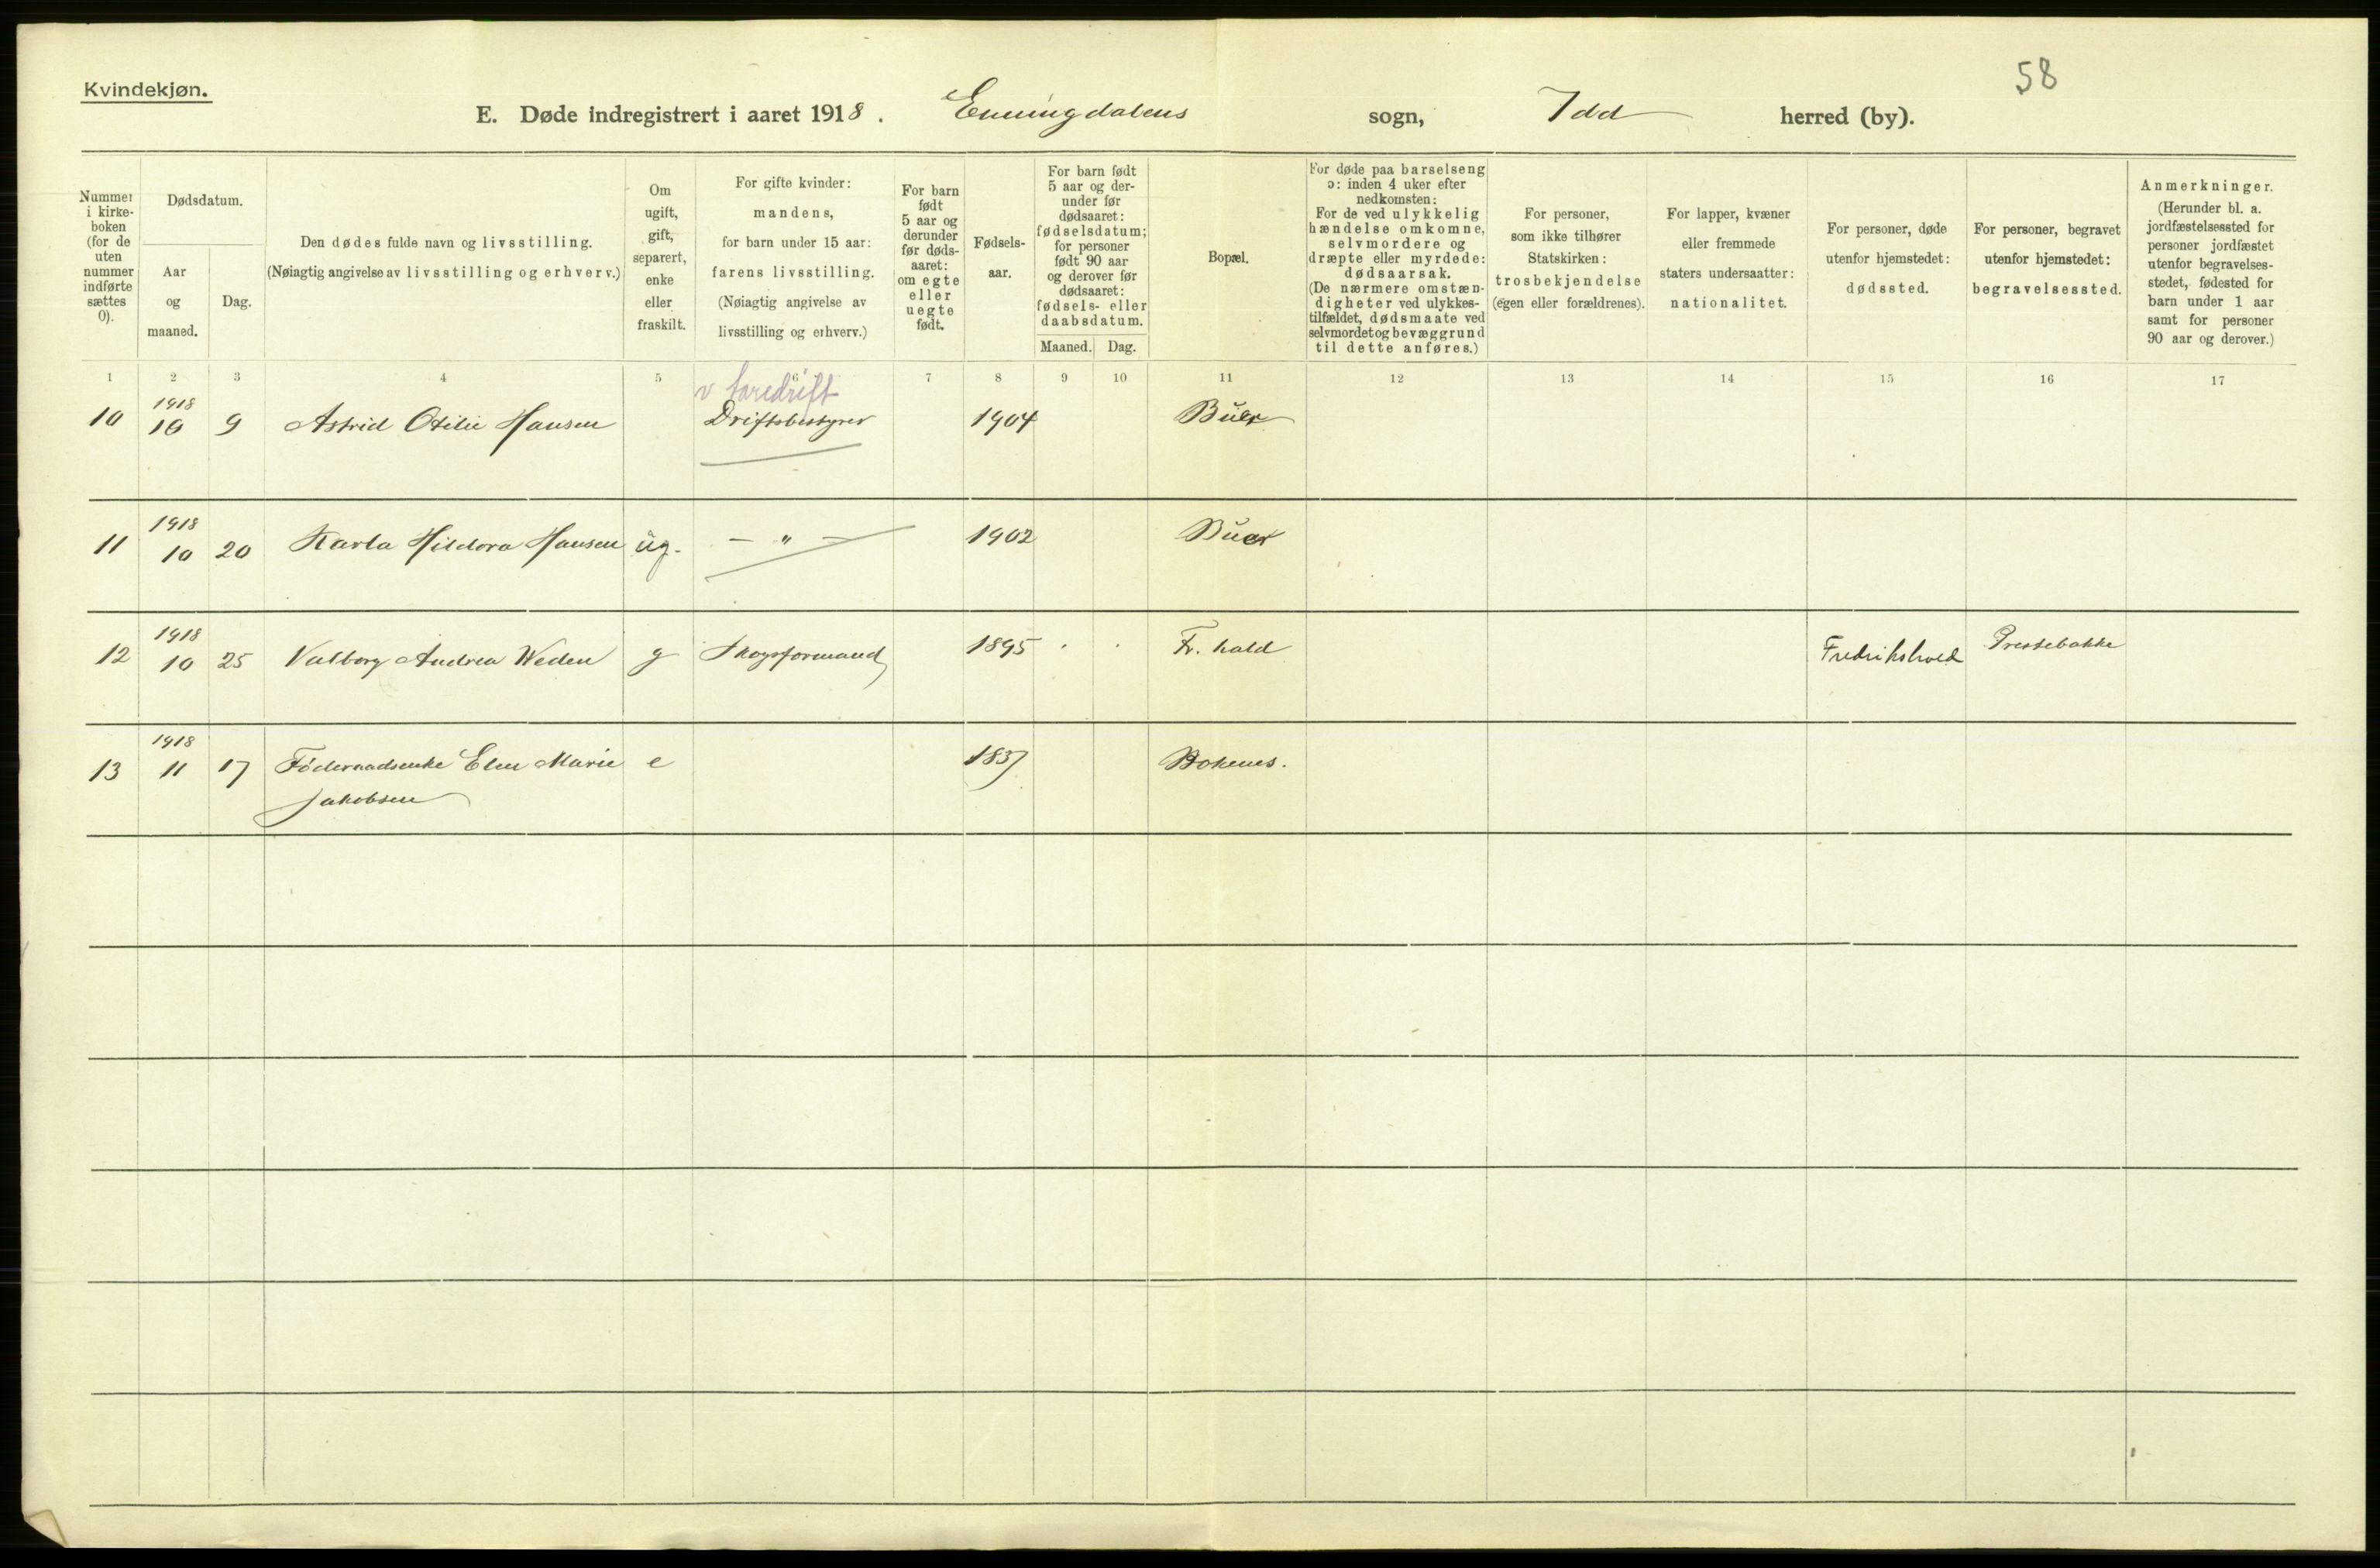 58
Kvindekjøn.
E. Døde indregistrert i aaret 1918. Enningdalens sogn, Idd herred (by).
Nummer i kirke-boken (for de uten nummer indførte sættes 0).
Dødsdatum.
Aar og maaned.
Dag.
Den dødes fulde navn og livsstilling.
(Nøiagtig angivelse av livsstilling og erhverv.)
Om ugift, gift, separert, enke eller fraskilt.
For gifte kvinder:
mandens,
for barn under 15 aar:
farens livsstilling.
(Nøiagtig angivelse av
livsstilling og erhverv.)
For barn født 5 aar og derunder før døds-aaret: om egte eller uegte født.
Fødsels-aar.
For barn født 5 aar og der-under før dødsaaret: fødselsdatum; for personer født 90 aar og derover før dødsaaret: fødsels- eller daabsdatum.
Maaned. Dag.
Bopæl.
For døde paa barselseng
ɔ: inden 4 uker efter
nedkomsten:
For de ved ulykkelig
hændelse omkomne,
selvmordere og
dræpte eller myrdede:
dødsaarsak.
(De nærmere omstæn-
digheter ved ulykkes-
tilfældet, dødsmaate ved
selvmordet og bevæggrund
til dette anføres.)
For personer,
som ikke tilhører
Statskirken:
trosbekjendelse
(egen eller forældrenes).
For lapper, kvæner
eller fremmede
staters undersaatter:
nationalitet.
For personer, døde
utenfor hjemstedet:
dødssted.
For personer, begravet
utenfor hjemstedet:
begravelsessted.
Anmerkninger.
(Herunder bl. a.
jordfæstelsessted for
personer jordfæstet
utenfor begravelses-
stedet, fødested for
barn under 1 aar
samt for personer
90 aar og derover.)
1 2 3 4 5 6 7 8 9 10 11 12 13 14 15 16 17
10 1918 10 9 Astrid Otilie Hansen Driftsbestyrer 1904 Buer
11 1918 10 20 Karla Hildora Hansen ug. — " — 1902 Buer
12 1918 10 25 Valborg Andrea Weden g Skogsformand 1895 Fr. hald Fredrikshald Prestebakke
13 1918 11 17 Föderaadsenke Elen Marie e 1837 Bokenes.
Jakobsen